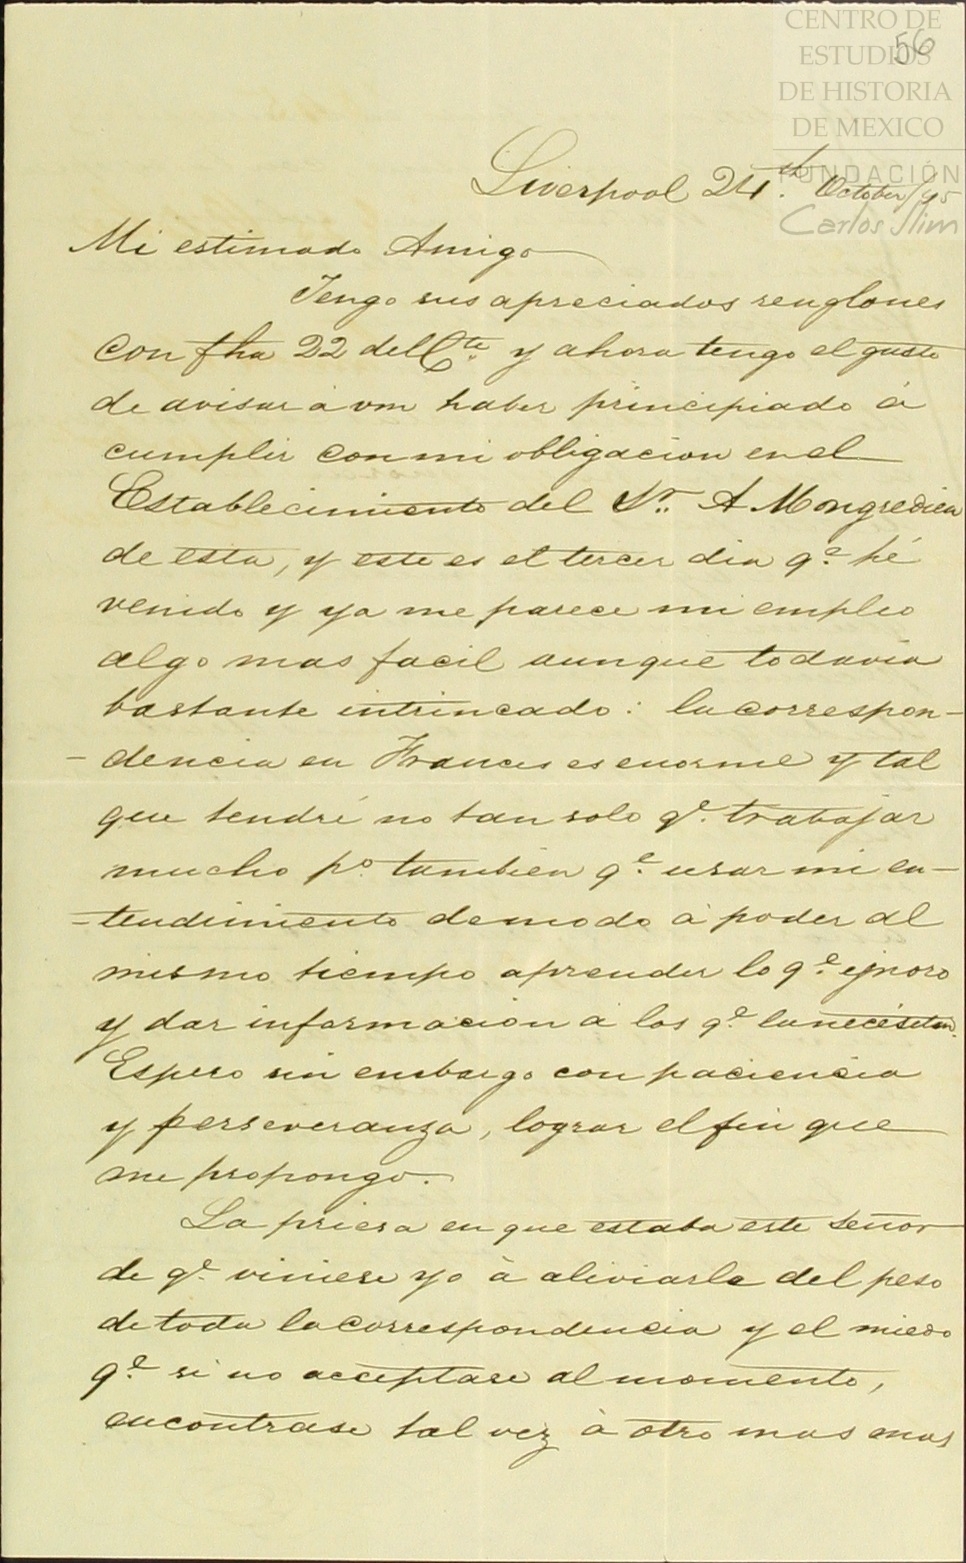 CENTRO DE
ESTUDIOS
DE HISTORIA
DE MEXICO
FUNDACIÓN
Carlos Slim
56
Liverpool 24th. October/95
Mi estimado Amigo
Tengo sus apreciados renglones
con fha 22 del Cte. y ahora tengo el gusto
de avisar a vm haber principiado á
cumplir con mi obligacion en el
Establecimiento del Sr. A Mongredien
de esta, y este es el tercer dia qe. hé
venido y ya me parece mi empleo
algo mas facil aunque todavia
bastante intrincado: la correspon-
-dencia en Frances es enorme y tal
que tendré no tan solo qe. trabajar
mucho po. tambien qe. usar mi en-
-tendimiento de modo á poder al
mismo tiempo aprender lo qe. ignoro
y dar informacion á los qe. la necesitan.
Espero sin embargo con paciencia
y perseveranza, lograr el fin que
me propongo.
La priesa en que estaba este Señor
de qe. viniese yo á aliviarle del peso
de toda la correspondencia y el miedo
qe. si no acceptase al momento,
encontrase tal vez á otro mas mas